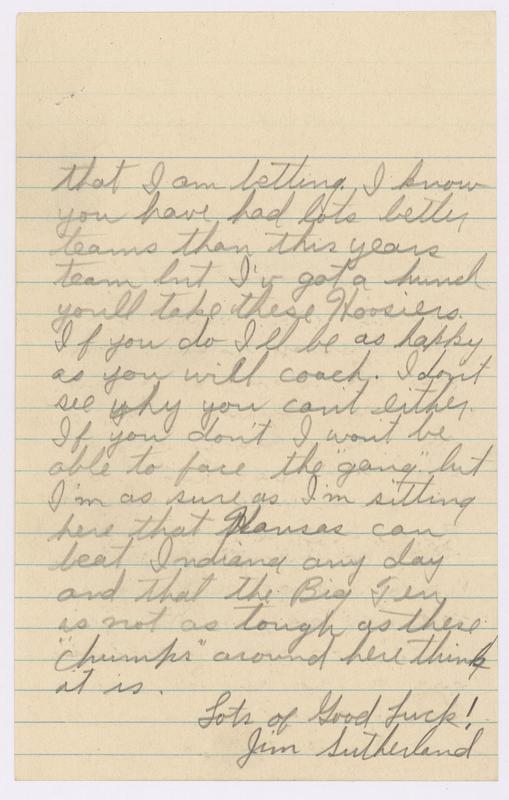 that I am betting. I know
you have had lots better
teams than this years
team but I'v got a hunch
youll take these Hoosiers.
If you do I'll be as happy
as you will coach. I don't
see why you can't either.
If you don't I won't be
able to face the "gang" but
I'm as sure as I'm sitting
here that Kansas can
beat Indiana any day
and that the Big Ten
is not as tough as these
"chumps" around here think
it is.
Lots of Good Luck!
Jim Sutherland